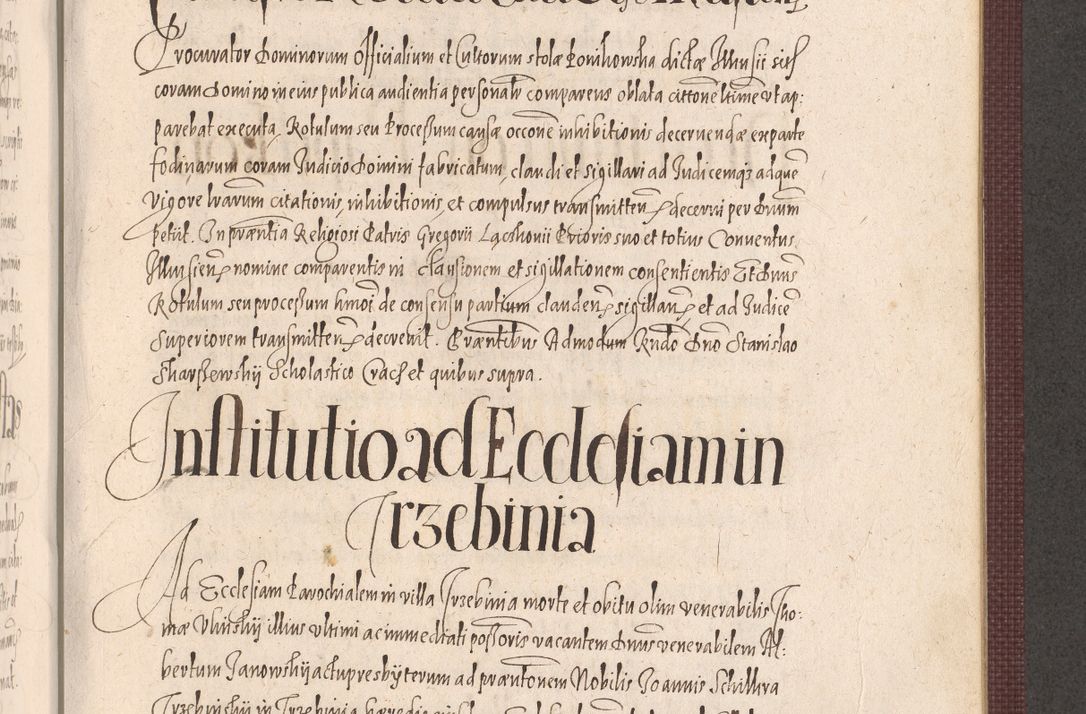 Procurator Dominorum Officialium et Cultorum stolæ Ponikowska dictæ Illkusii sitæ
coram Domino in eius publica audientia personalr comparens oblata cittone ultime ut ap:
parebat executa. Rotulum seu Processum causæ occone inhibitionis decernendæ ex parte
fodinarum coram Judicio Domini fabricatum, claudi et sigillari ad Judicemq3 ad quē
vigore lrarum citationis, inhibitionis, et compulsus transmitten decerni per Dnum
petiit. In præntia Religiosi Patris Gregorii Prioris suo et totius Conventus
Illkusien nomine comparentis in clausionem et sigillationem consentientis Et Dnus
Rotulum seu processum hmoi de consensu partium clauden sigillan et ad Judicē
Superiorem transmitten decrevit. Præntibus Admodum Rndo Dno Stanislao
Skarszewskij Scholastico Crac et quibus supra.
Institutio ad Ecclesiam in
Trzebinia
Ad Ecclesiam Parochialem in villa Trzebinia morte et obitu olim venerabilis Tho:
mæ Ulinskij illius ultimi ac immediati possoris vacantem Dnus venerabilem Al:
bertum Janowskij actu presbyterum ad præntonem Nobilis Joannis Schillkra
Trzebinskij in Trzebinia hæredis